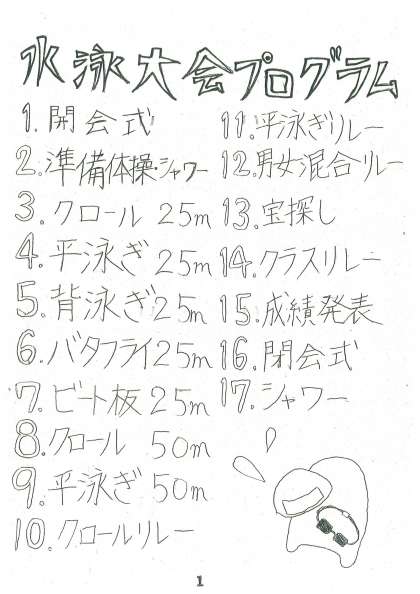 水泳大会プログラム
1. 開会式
2. 準備体操・シャワー
3. クロール 25m
4. 平泳ぎ 25m
5. 背泳ぎ 25m
6. バタフライ 25m
7. ビート板 25m
8. クロール 50m
9. 平泳ぎ 50m
10. クロールリレー
11. 平泳ぎリレー
12. 男女混合リレー
13. 宝探し
14. クラスリレー
15. 成績発表
16. 閉会式
17. シャワー
1